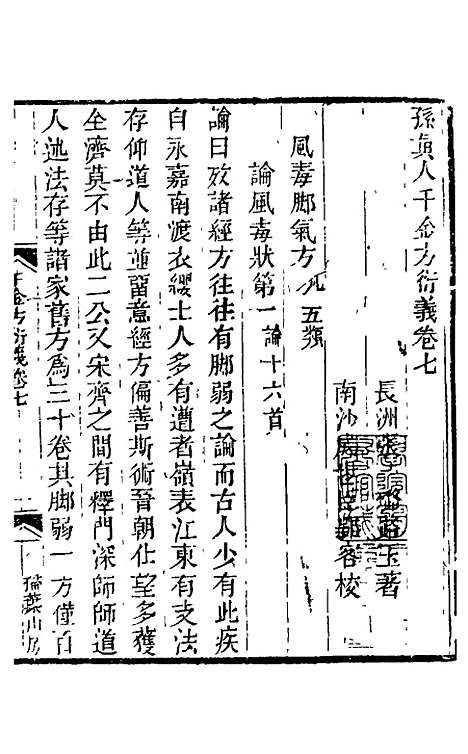 孫真人千金方衍義卷七
長洲張璐路玉著
南沙席世臣郢客校
風毒脚氣方凡五類
論風毒狀第一論十六首
論曰攷諸經方往往有脚弱之論而古人少有此疾
自永嘉南渡衣纓士人多有遭者嶺表江東有支法
存仰道人等並留意經方偏善斯術晉朝仕望多獲
全濟莫不由此二公又宋齊之間有釋門深師師道
人述法存等諸家舊方為三十卷其脚弱一方僅百
千金方衍義卷七
一
掃葉山房